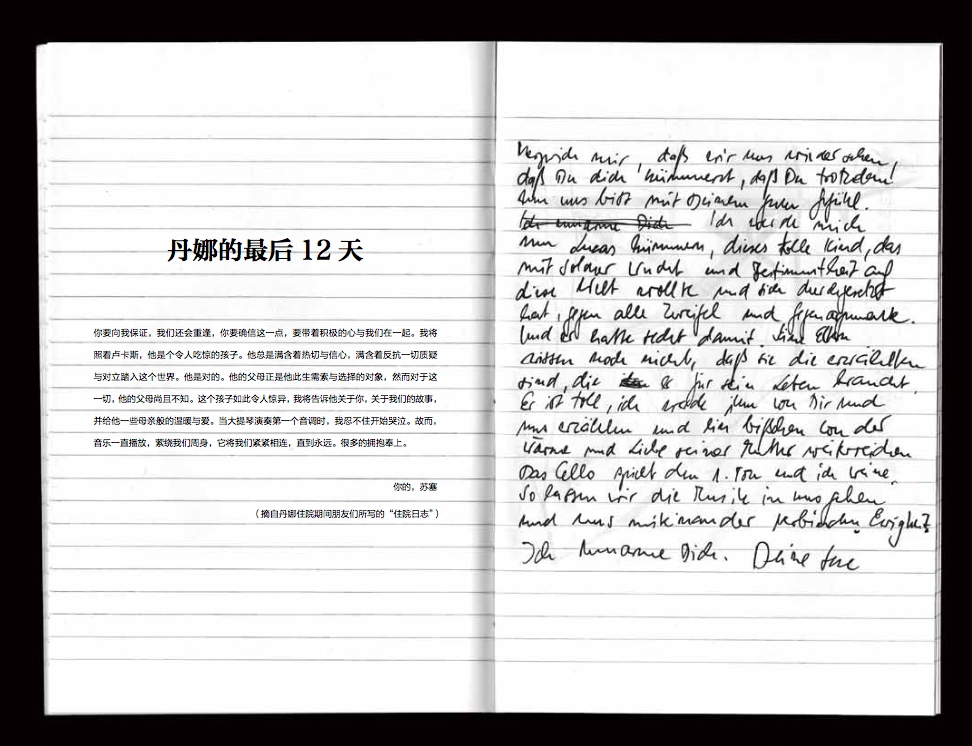 丹娜的最后 12 天
你要向我保证，我们还会重逢，你要确信这一点，要带着积极的心与我们在一起。我将
照看卢卡斯，他是个令人吃惊的孩子。他总是满含着热切与信心，满含着反抗一切质疑
与对立踏入这个世界。他是对的。他的父母正是他此生需索与选择的对象，然而对于这
一切，他的父母尚且不知。这个孩子如此令人惊异，我将告诉他关于你，关于我们的故事，
并给他一些母亲般的温暖与爱。当大提琴演奏第一个音调时，我忍不住开始哭泣。故而，
音乐一直播放，萦绕我们周身，它将我们紧紧相连，直到永远。很多的拥抱奉上。
你的，苏塞
（摘自丹娜住院期间朋友们所写的“住院日志”）
Versprich mir, daß wir uns wiedersehen,
daß Du dich kümmerst, daß Du trotzdem
bei uns bist mit Deinem guten Gefühl.
Ich umarme Dich Ich werde mich
um Lucas kümmern, dieses tolle Kind, das
mit solcher Wucht und Bestimmtheit auf
diese Welt wollte und sich durchgesetzt
hat, gegen alle Zweifel und Gegenargumente.
Und er hatte recht damit. Seine Eltern
wissen noch nicht, daß sie die erwählten
sind, die er für sein Leben braucht.
Er ist toll, ich werde ihm von Dir und
uns erzählen und ein bißchen von der
Wärme und Liebe seiner Mutter weiterreichen
Das Cello spielt den 1. Ton und ich weine.
So lassen wir die Musik in uns gehen
und uns miteinander verbinden. Ewigkeit.
Ich umarme Dich. Deine Suse